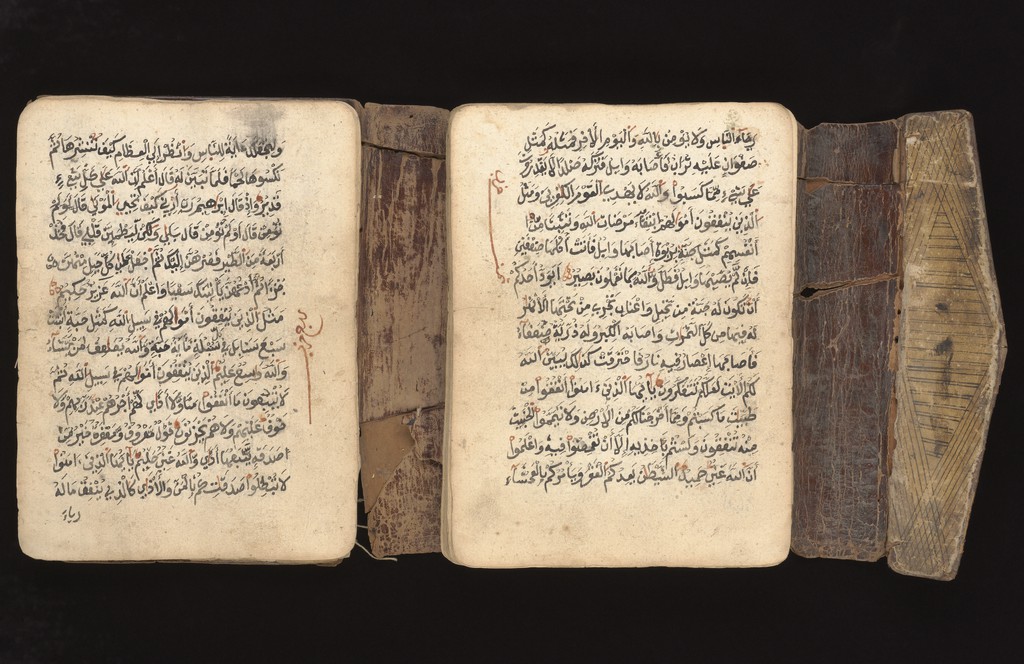 ولنجعلك ءاية للناس وانظر إلى العظام كيف ننشزها ثم
نكسوها لحما فلما تبين له قال أعلم أن الله على كل شيء
قدير وإذ قال إبرهيم رب أرني كيف تحيي الموتى قال أولم
تؤمن قال أولم تؤمن قال بلى ولكن ليطمئن قلبي قال فخذ
أربعة من الطير فصرهن إليك ثم اجعل على كل جبل منهن
جزءا ثم ادعهن يأتينك سعيا واعلم أن الله عزيز حكيم
مثل الذين ينفقون أموالهم في سبيل الله كمثل حبة أنبتت
سبع سنابل في كل سنبلة مائة حبة والله يضعف لمن يشاء
والله واسع عليم الذين ينفقون أموالهم في سبيل الله ثم
لا يتبعون ما أنفقوا منا ولا أذى لهم أجرهم عند ربهم ولا
خوف عليهم ولا هم يحزنون قول معروف ومغفرة خير من
صدقة يتبعها أذى والله غني حليم يأيها الذين ءامنوا
لا تبطلوا صدقتكم بالمن والأذى كالذي ينفق ماله
رياء
رياء الناس ولا يؤمن بالله واليوم الأخر فمثله كمثل
صفوان عليه تراب فأصابه وابل فتركه صلدا لا يقدرون
على شيء مما كسبوا والله لا يهدي القوم الكفرين ومثل
الذين ينفقون أموالهم ابتغاء مرضات الله وتثبيتا من
أنفسهم كمثل جنة بربوة أصابها وابل فأتت أكلها ضعفين
فإن لم يصبها وابل فطل والله بما تعملون بصير أيود أحدكم
أن تكون له جنة من نخيل وأعناب تجري من تحتها الأنهر
له فيها من كل الثمرات وأصابه الكبر وله ذرية ضعفاء
فأصابها إعصار فيه نار فاحترقت كذلك يبين الله
لكم الأيت لعلكم تتفكرون يأيها الذين ءامنوا أنفقوا من
طيبت ما كسبتم ومما أخرجنا لكم من الأرض ولا تيمموا الخبيث
منه تنفقون ولستم بأخذيه إلا أن تغمضوا فيه واعلموا
أن الله غني حميد الشيطن يعدكم الفقر ويأمركم بالفحشاء